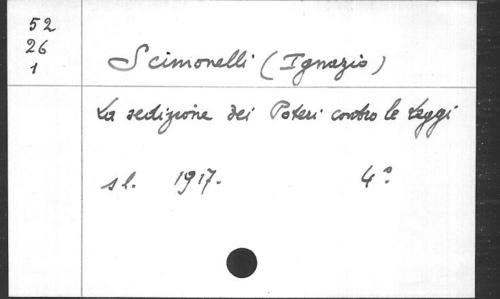 52
26
1
Scimonelli (Ignazio)
La sedizione dei Poteri contro le Leggi
s l. 1917. 4°.